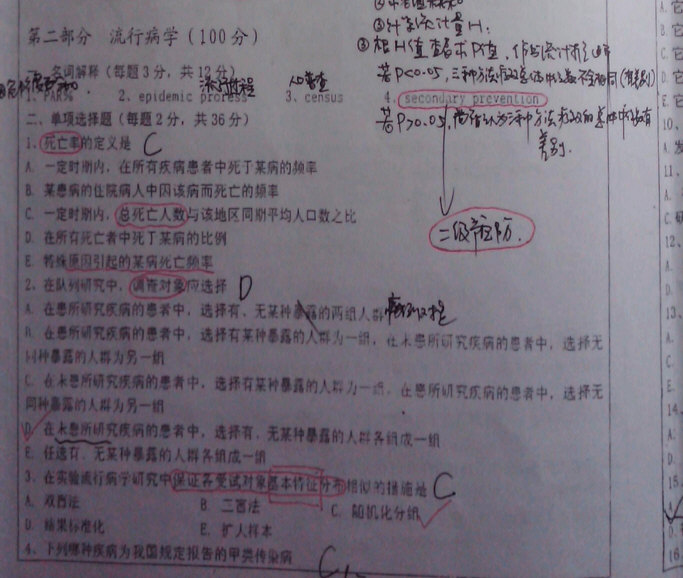 ③计算统计量H:
第二部分 流行病学（100分）
一、名词解释（每题3分，共12分）
流行过程
人口普查
1、PAR%
2、epidemic process
3、census
4、secondary prevention
二级预防.
二、单项选择题（每题2分，共36分）
1、死亡率的定义是 C
A. 一定时期内，在所有疾病患者中死于某病的频率
B. 某患病的住院病人中因该病而死亡的频率
C. 一定时期内，总死亡人数与该地区同期平均人口数之比
D. 在所有死亡者中死于某病的比例
E. 特殊原因引起的某病死亡频率
2、在队列研究中，调查对象应选择 D
A. 在患所研究疾病的患者中，选择有、无某种暴露的两组人群
B. 在患所研究疾病的患者中，选择有某种暴露的人群为一组，在未患所研究疾病的患者中，选择无
同种暴露的人群为另一组
C. 在未患所研究疾病的患者中，选择有某种暴露的人群为一组，在患所研究疾病的患者中，选择无
同种暴露的人群为另一组
D. 在未患所研究疾病的患者中，选择有、无某种暴露的人群各组成一组
E. 任选有、无某种暴露的人群各组成一组
3、在实验流行病学研究中保证各受试对象基本特征分布相似的措施是 C
A. 双盲法
B. 二盲法
C. 随机化分组
D. 结果标准化
E. 扩大样本
4、下列哪种疾病为我国规定报告的甲类传染病